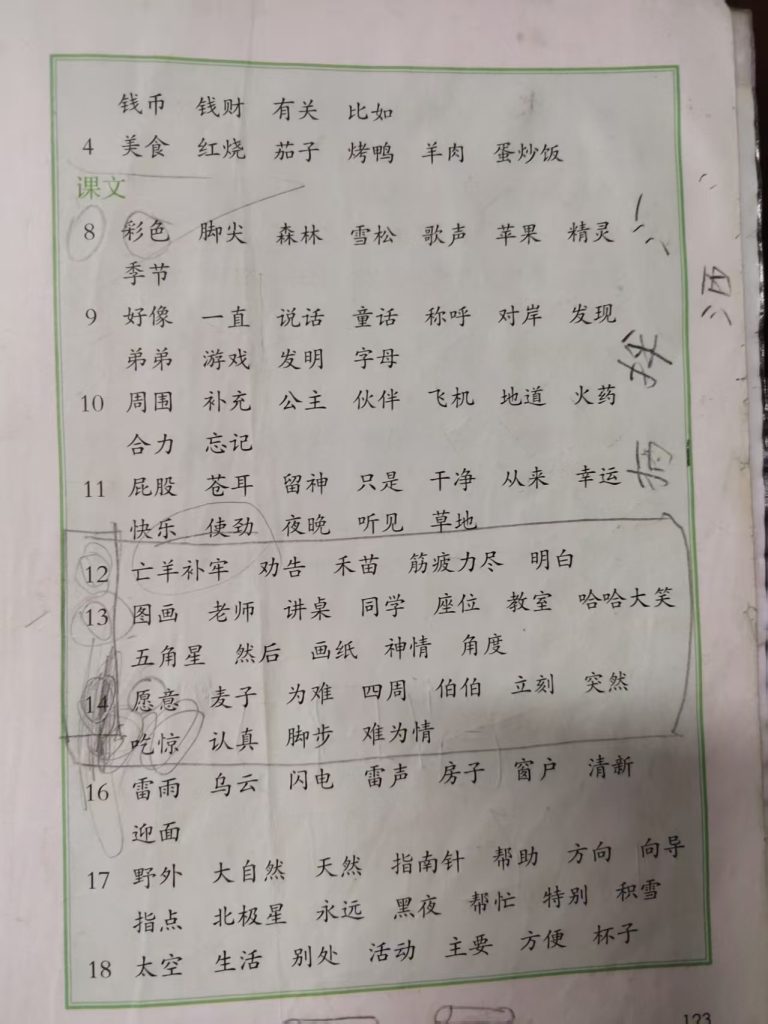 钱币 钱财 有关 比如
4 美食 红烧 茄子 烤鸭 羊肉 蛋炒饭
课文
8 彩色 脚尖 森林 雪松 歌声 苹果 精灵
季节
9 好像 一直 说话 童话 称呼 对岸 发现
弟弟 游戏 发明 字母
10 周围 补充 公主 伙伴 飞机 地道 火药
合力 忘记
11 屁股 苍耳 留神 只是 干净 从来 幸运
快乐 使劲 夜晚 听见 草地
12 亡羊补牢 劝告 禾苗 筋疲力尽 明白
13 图画 老师 讲桌 同学 座位 教室 哈哈大笑
五角星 然后 画纸 神情 角度
14 愿意 麦子 为难 四周 伯伯 立刻 突然
吃惊 认真 脚步 难为情
16 雷雨 乌云 闪电 雷声 房子 窗户 清新
迎面
17 野外 大自然 天然 指南针 帮助 方向 向导
指点 北极星 永远 黑夜 帮忙 特别 积雪
18 太空 生活 别处 活动 主要 方便 杯子
123